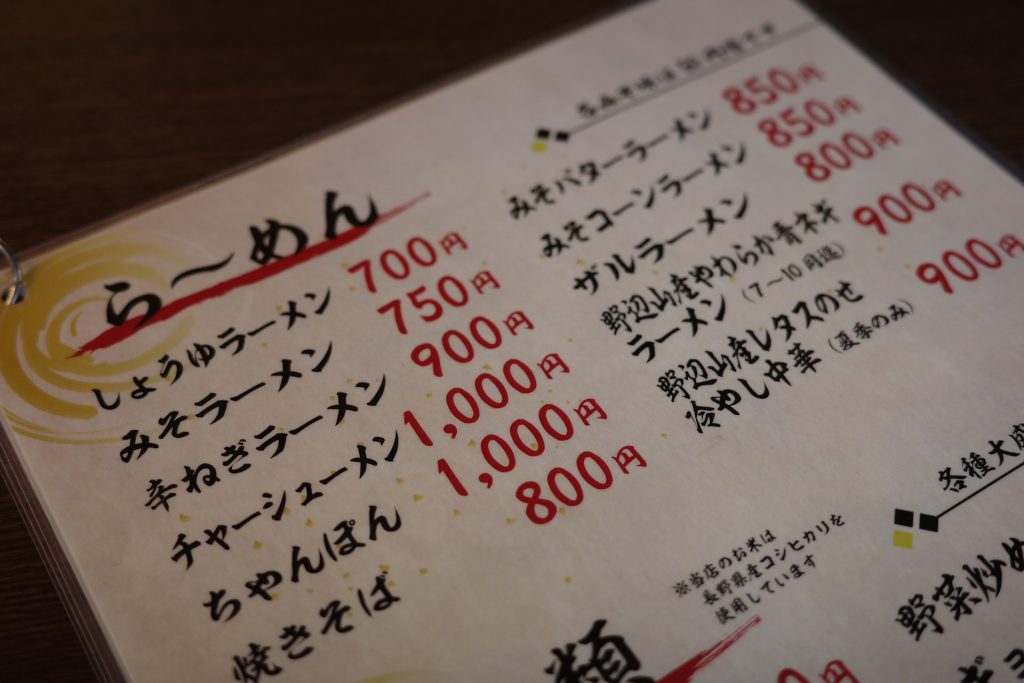 ら〜めん
しょうゆラーメン 700円
みそラーメン 750円
辛ねぎラーメン 900円
チャーシューメン 1,000円
ちゃんぽん 1,000円
焼きそば 800円
みそバターラーメン 850円
みそコーンラーメン 850円
ザルラーメン 800円
野辺山産やわらか青ネギ
ラーメン (7〜10月迄) 900円
野辺山産レタスのせ
冷やし中華 (夏季のみ) 900円
※当店のお米は
長野県産コシヒカリを
使用しています
類
各種大盛
野菜炒め